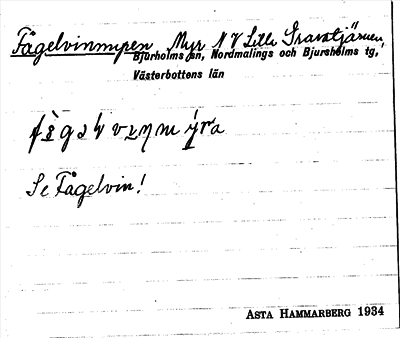 Fågelvinmyren Myr NV Lilla Gravatjärnen,
Bjurholms sn, Nordmalings och Bjursholms tg,
Västerbottens län
Se Fågelvin!
ASTA HAMMARBERG 1934